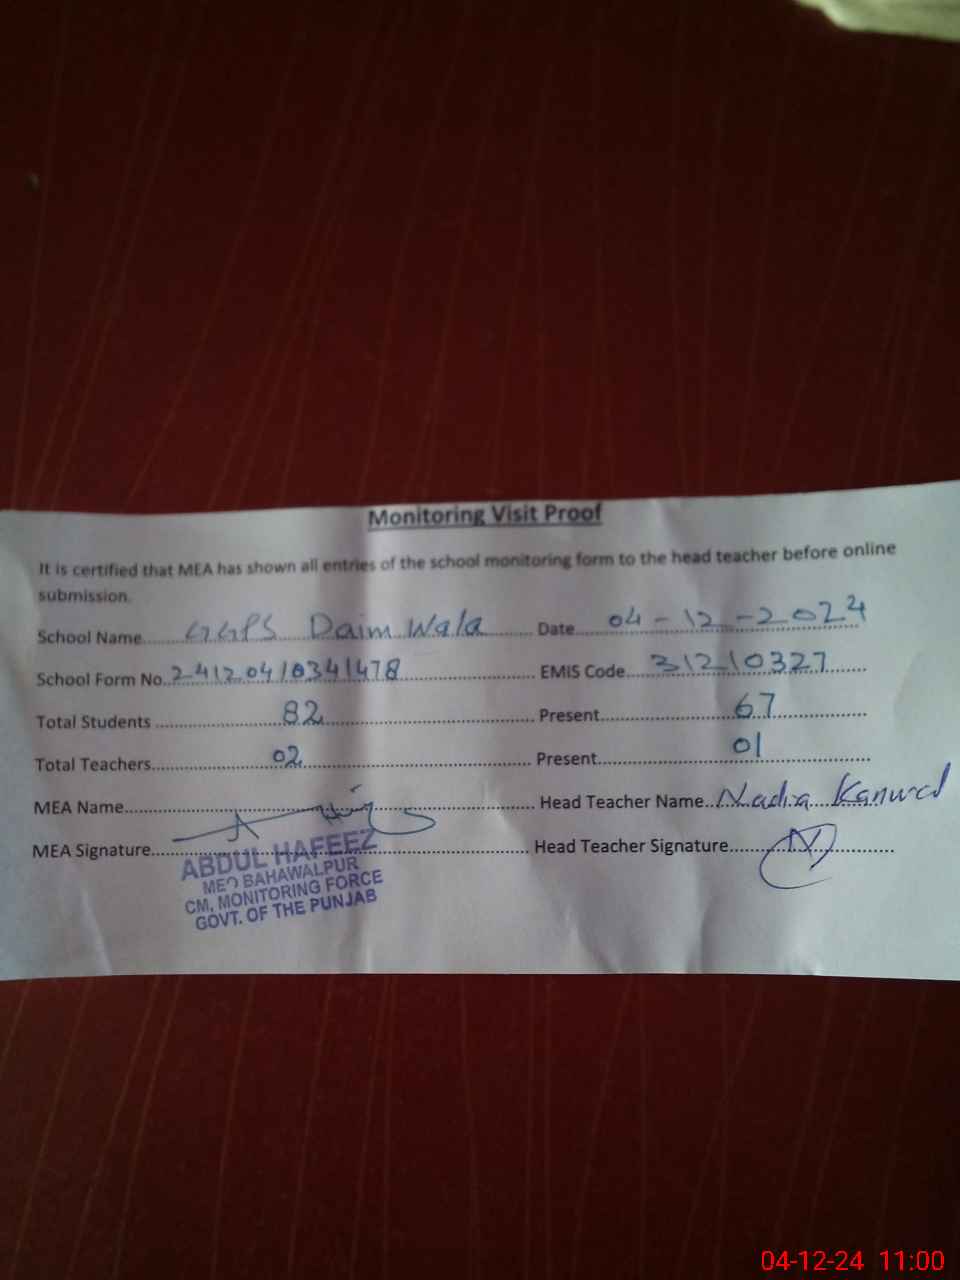 Monitoring Visit Proof
It is certified that MEA has shown all entries of the school monitoring form to the head teacher before online
submission.
School Name GGPS Daim Wala Date 04-12-2024
School Form No. 24120410341478 EMIS Code 31210327
Total Students 82 Present 67
Total Teachers 02 Present 01
MEA Name Head Teacher Name Nadia Kanwal
MEA Signature Head Teacher Signature
ABDUL HAFEEZ
MEO BAHAWALPUR
CM, MONITORING FORCE
GOVT. OF THE PUNJAB
04-12-24 11:00